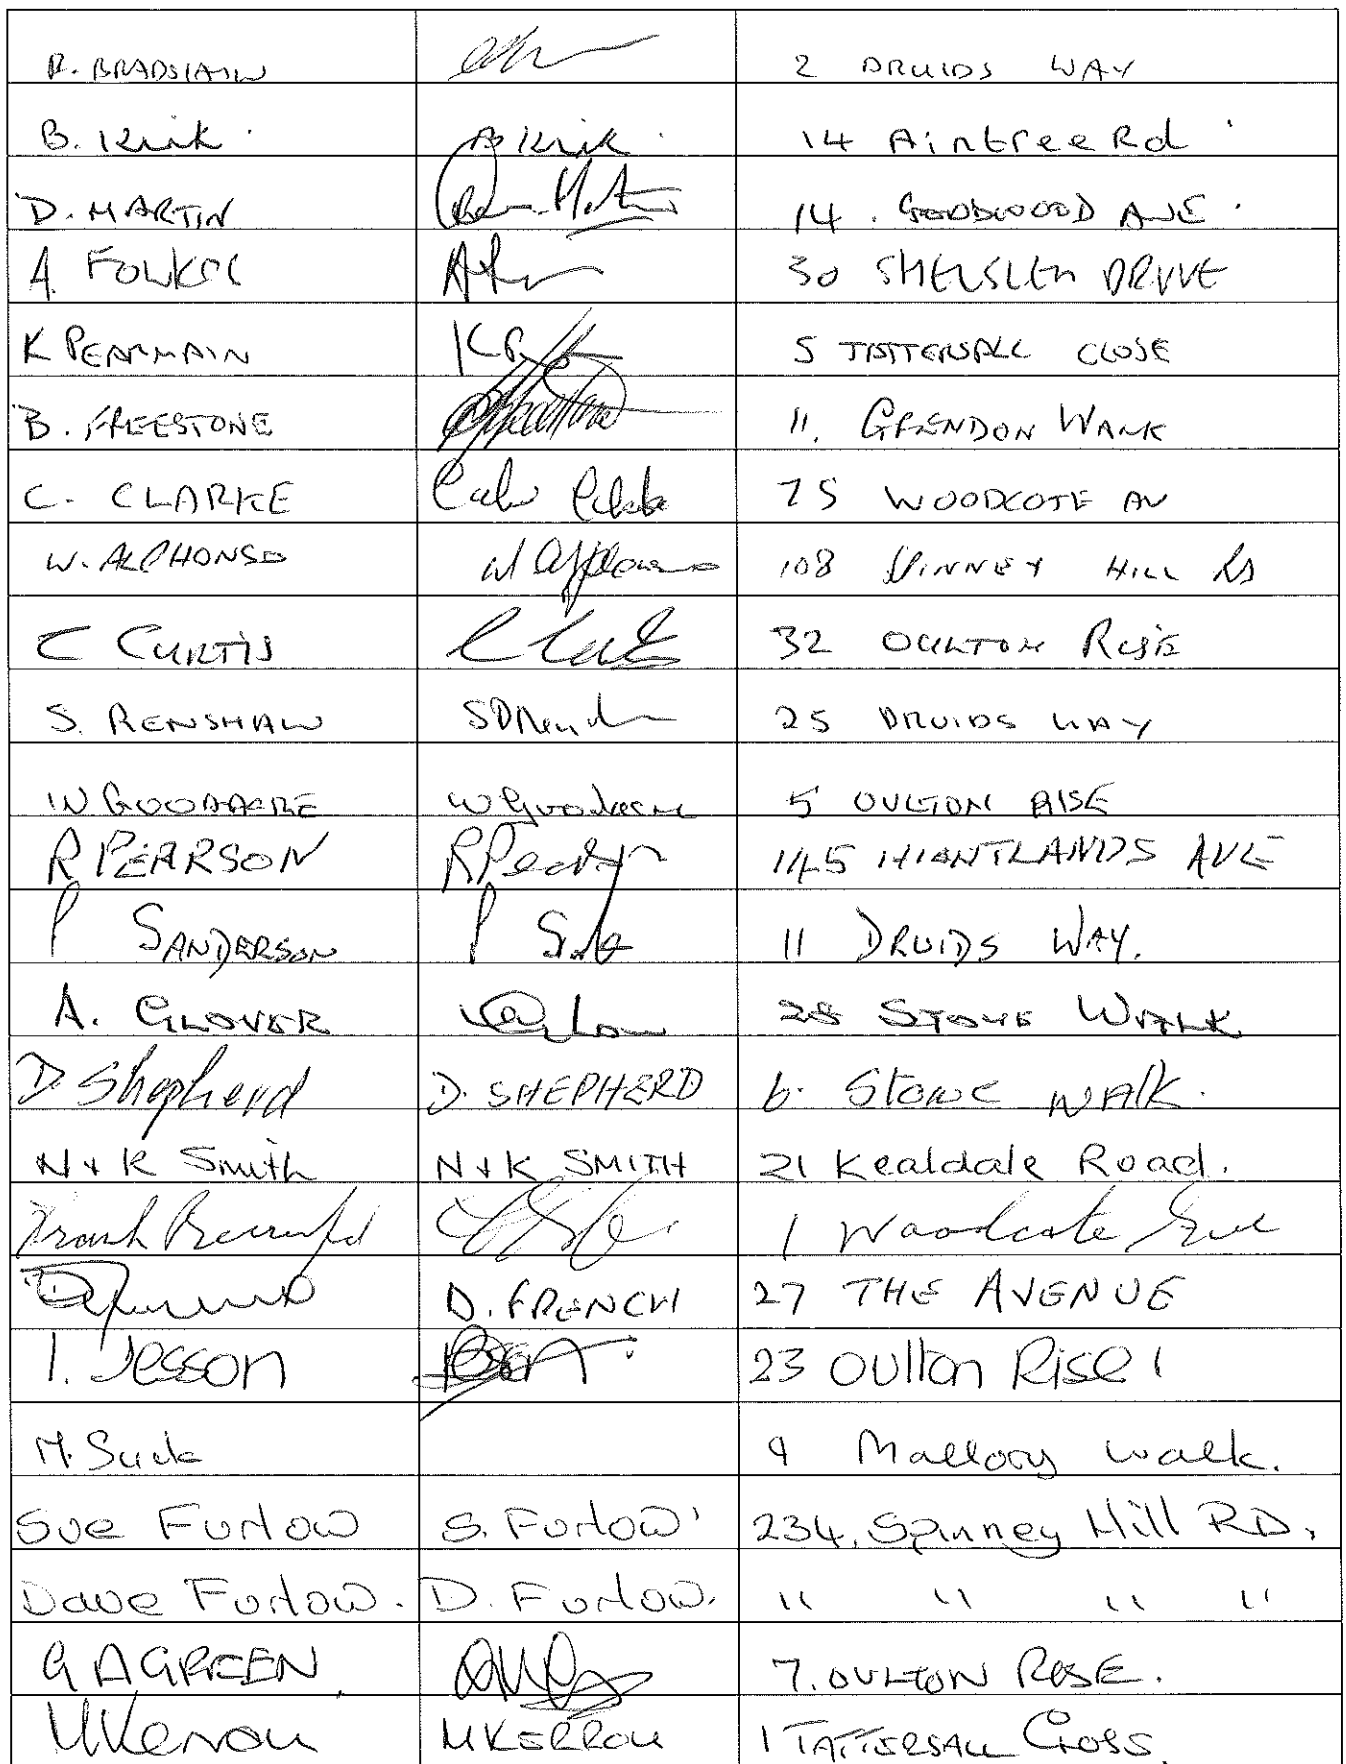 R. BRADSHAW 2 DRUIDS WAY
B. Kirk. B Kirk. 14 Aintree Rd
D. MARTIN 14. GOODWOOD AVE.
A. FOWKES 30 SHELSLEY DRIVE
K PEARMAIN 5 TATTERSALL CLOSE
B. FREESTONE 11, GRENDON WALK
C. CLARKE 75 WOODCOTE AV
W. ALPHONSO 108 SPINNEY HILL Rd
C CURTIS 32 OULTON RISE
S. RENSHAW 25 DRUIDS WAY
W GOODACRE W Goodacre 5 OULTON RISE
R PEARSON R Pearson 145 AVE
P SANDERSON 11 DRUIDS WAY.
A. GLOVER 28 STOWE WALK
D Shepherd D. SHEPHERD 6. Stowe WALK.
N + K Smith N + K SMITH 21 Kealdale Road.
Frank 1 Woodcote Ave
D. FRENCH 27 THE AVENUE
I. Jesson 23 Oulton Rise!
M. 9 Mallory walk.
Sue Furlow S. Furlow 234, Spinney Hill RD,
Dave Furlow. D. Furlow. " " " "
G A GREEN. 7. OULTON RISE.
M Kerrou M KERROU 1 TATTERSALL Cross.